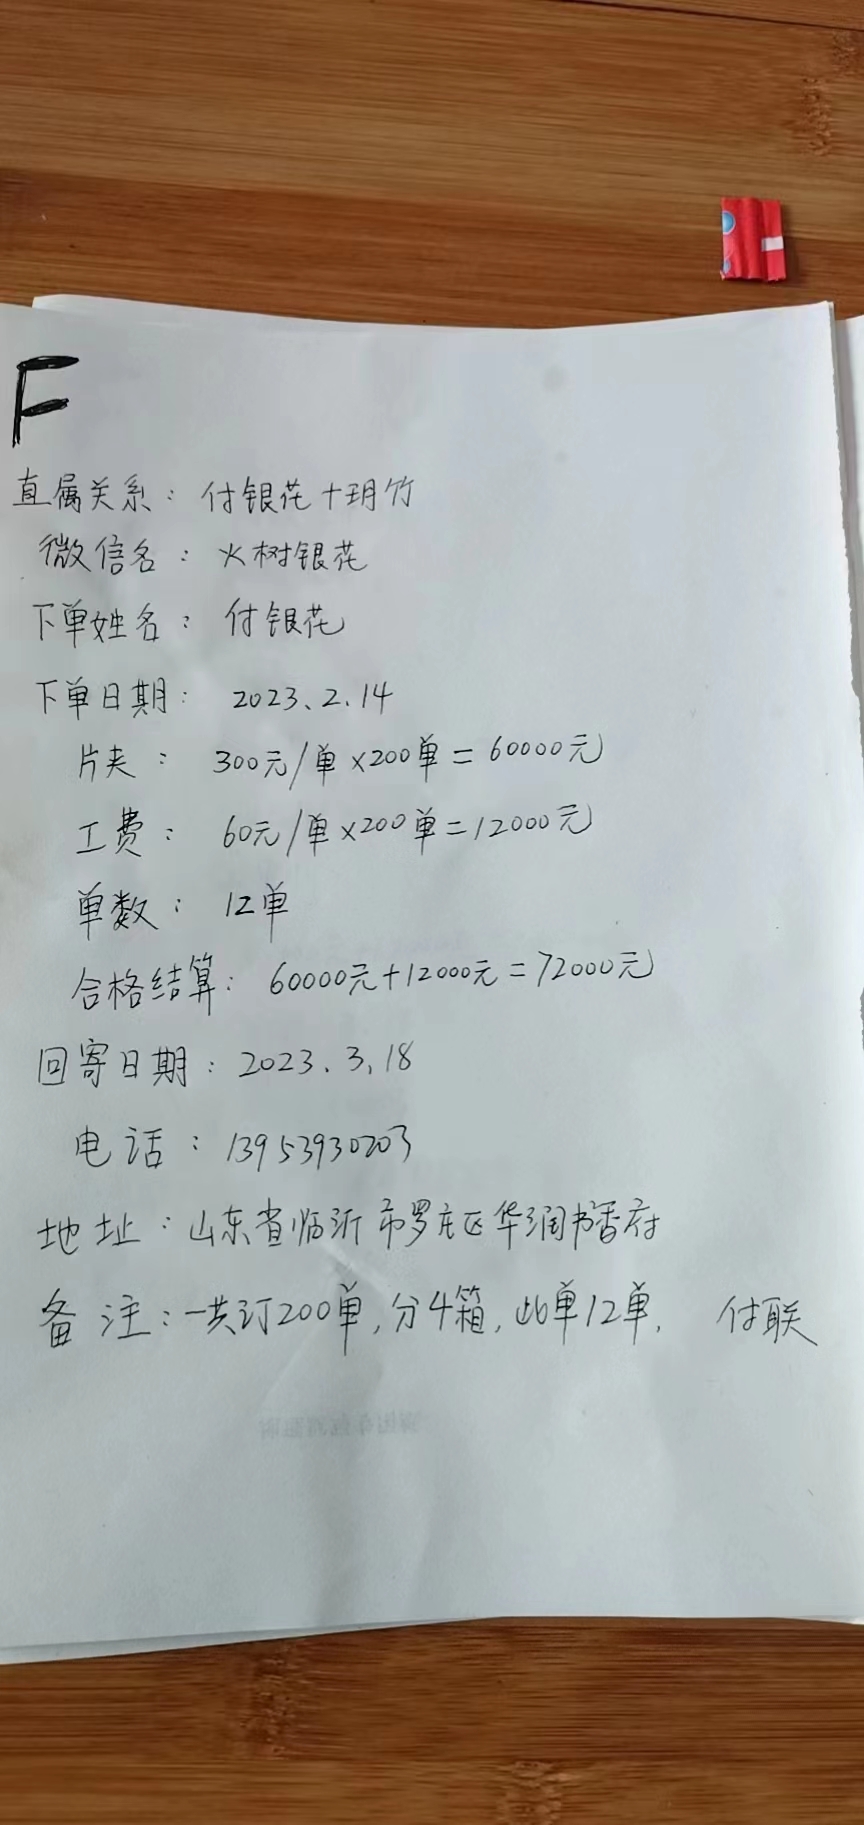 F
直属关系：付银花十玥竹
微信名：火树银花
下单姓名：付银花
下单日期：2023、2.14
片夹：300元/单×200单=60000元
工费：60元/单×200单=12000元
单数：12单
合格结算：60000元+12000元=72000元
回寄日期：2023.3.18
电话：13953930203
地址：山东省临沂市罗庄区华润书香府
备注：一共订200单,分4箱,此单12单. 付联